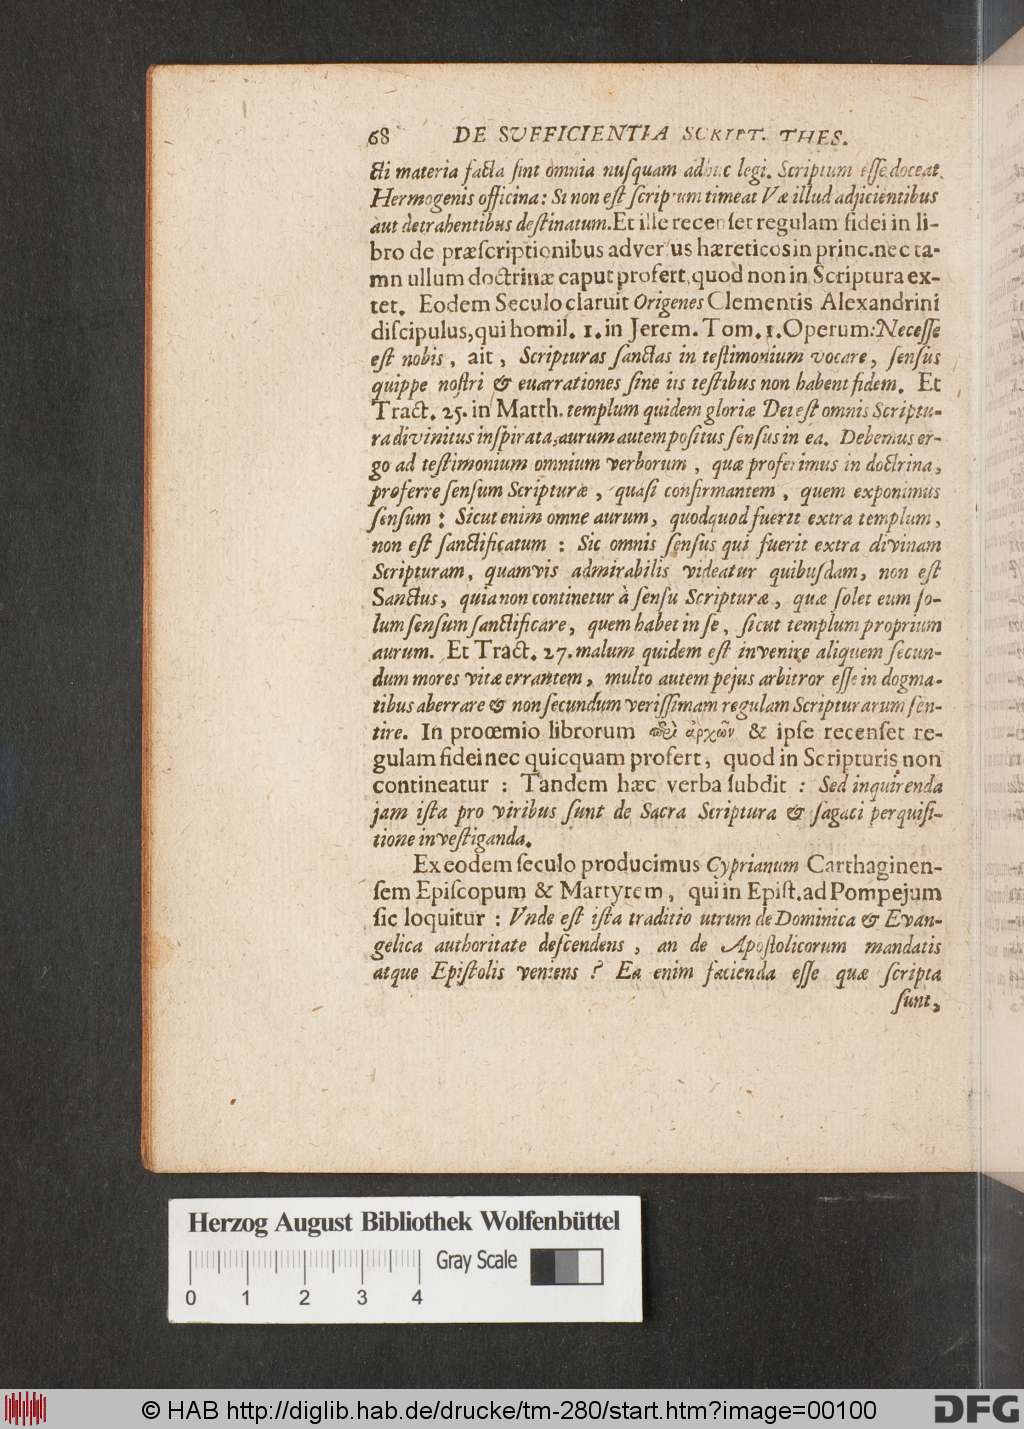 68 DE SVFFICIENTIA SCRIPT. THES.
cti materia facta ſint omnia nuſquam adhuc legi. Scriptum eſſe doceat
Hermogenis officina: Si non eſt ſcriptum timeat Væ illud adjicientibus
aut detrahentibus deſtinatum. Et ille recenſet regulam fidei in li-
bro de præſcriptionibus adverſus hæreticos in princ. nec ta-
mn ullum doctrinæ caput profert, quod non in Scriptura ex-
tet. Eodem Seculo claruit Origenes Clementis Alexandrini
diſcipulus, qui homil. 1. in Jerem. Tom. 1. Operum: Neceſſe
eſt nobis, ait, Scripturas ſanctas in teſtimonium vocare, ſenſus
quippe noſtri & euarrationes ſine iis teſtibus non habent fidem. Et
Tract. 25. in Matth. templum quidem gloriæ Dei eſt omnis Scriptu-
ra divinitus inſpirata, aurum autem poſitus ſenſus in ea. Debemus er-
go ad teſtimonium omnium verborum, quæ proferimus in doctrina,
proferre ſenſum Scripturæ, quaſi confirmantem, quem exponimus
ſenſum: Sicut enim omne aurum, quodquod fuerit extra templum,
non eſt ſanctificatum: Sic omnis ſenſus qui fuerit extra divinam
Scripturam, quamvis admirabilis videatur quibuſdam, non eſt
Sanctus, quia non continetur à ſenſu Scripturæ, quæ ſolet eum ſo-
lum ſenſum ſanctificare, quem habet in ſe, ſicut templum proprium
aurum. Et Tract. 27. malum quidem eſt invenire aliquem ſecun-
dum mores vitæ errantem, multo autem pejus arbitror eſſe in dogma-
tibus aberrare & non ſecundum veriſſimam regulam Scripturarum ſen-
tire. In proœmio librorum περὶ ἀρχῶν & ipſe recenſet re-
gulam fidei nec quicquam profert, quod in Scripturis non
contineatur: Tandem hæc verba ſubdit: Sed inquirenda
jam iſta pro viribus ſunt de Sacra Scriptura & ſagaci perquiſi-
tione inveſtiganda.
Ex eodem ſeculo producimus Cyprianum Carthaginen-
ſem Epiſcopum & Martyrem, qui in Epiſt. ad Pompejum
ſic loquitur: Vnde eſt iſta traditio utrum de Dominica & Evan-
gelica authoritate deſcendens, an de Apoſtolicorum mandatis
atque Epiſtolis veniens? Ea enim facienda eſſe quæ ſcripta
ſunt,
Herzog August Bibliothek Wolfenbüttel
Gray Scale
0 1 2 3 4
© HAB http://diglib.hab.de/drucke/tm-280/start.htm?image=00100
DFG